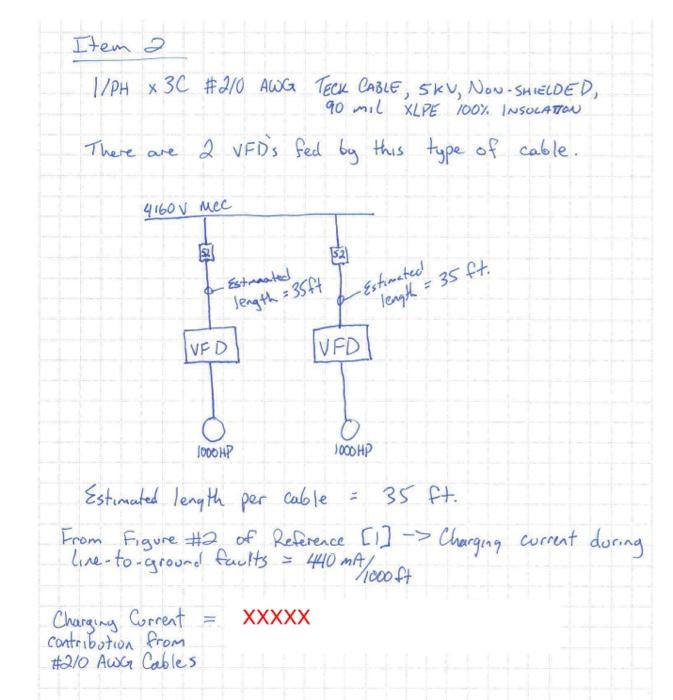 Item 2
1/PH x 3C #2/0 AWG TECK CABLE, 5KV, NON-SHIELDED,
90 mil XLPE 100% INSULATION
There are 2 VFD's fed by this type of cable.
4160V MCC
52
52
Estimated
length = 35ft
Estimated
length = 35 ft.
VFD
VFD
1000HP
1000HP
Estimated length per cable = 35 ft.
From Figure #2 of Reference [1] -> Charging current during
line-to-ground faults = 440 mA/1000ft
Charging Current = XXXXX
contribution from
#2/0 AWG Cables